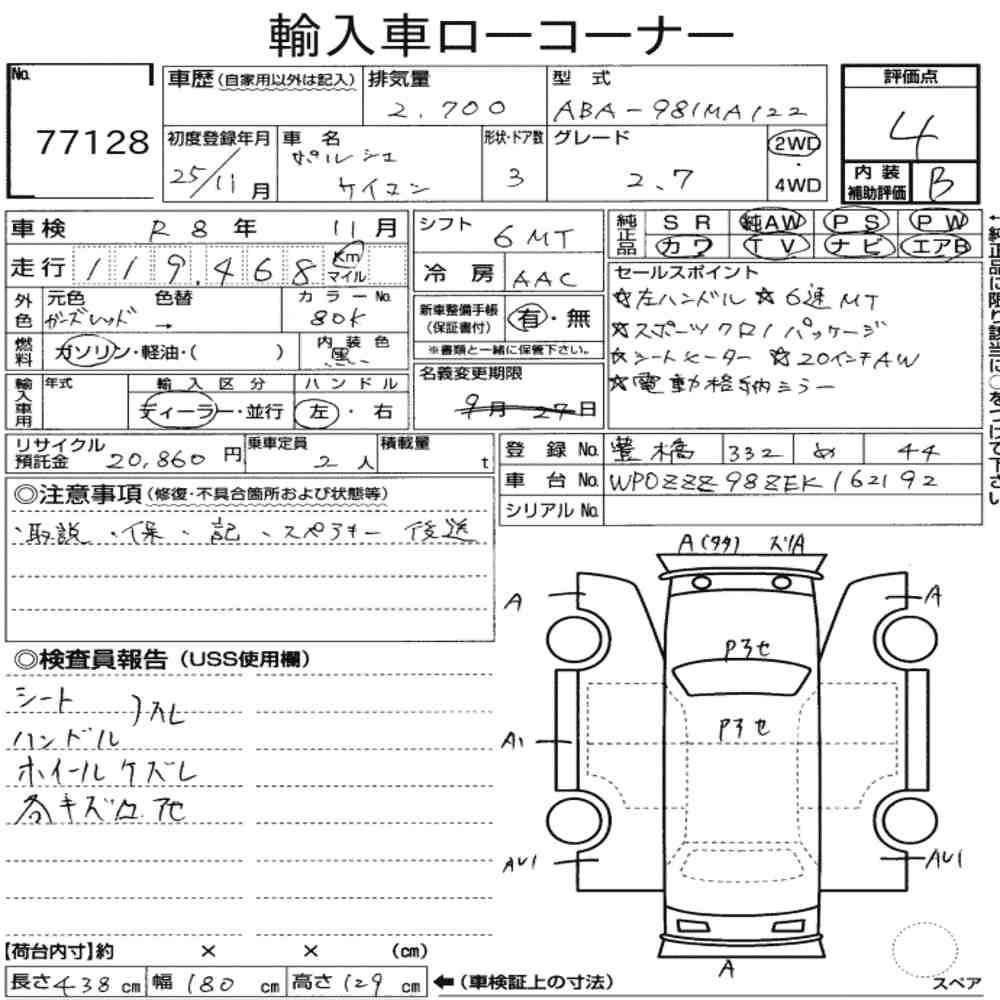 輸入車ローコーナー
No. 77128
車歴(自家用以外は記入)
排気量 2,700
型式 ABA-981MA122
評価点 4
初度登録年月 25/11月
車名 ポルシェ ケイマン
形状・ドア数 3
グレード 2.7
2WD・4WD
内装補助評価 B
車検 R8年 11月
走行 119,468 Km マイル
シフト 6MT
冷房 AAC
純正品 SR 純AW PS PW
カワ TV ナビ エアB
外色 元色 ガーズレッド 色替 →
カラーNo. 80K
燃料 ガソリン・軽油・( )
内装色 黒
新車整備手帳(保証書付) 有・無
※書類と一緒に保管下さい。
セールスポイント
☆左ハンドル ☆6速MT
☆スポーツクロノパッケージ
☆シートヒーター ☆20インチAW
☆電動格納ミラー
輸入車用 年式
輸入区分 ディーラー・並行
ハンドル 左・右
名義変更期限 9月27日
リサイクル預託金 20,860円
乗車定員 2人
積載量 t
登録No. 豊橋 332 め 44
車台No. WP0ZZZ98ZEK162192
シリアルNo.
◎注意事項(修復・不具合箇所および状態等)
・取説、保、記、スペアキー 後送
◎検査員報告(USS使用欄)
シート
ハンドル }スレ
ホイールケズレ
各キズ凹 他
A(タタ) ズリA
A
A
A1
AU1
AU1
A
スペア
【荷台内寸】約 × × (cm)
長さ438cm 幅180cm 高さ129cm
←(車検証上の寸法)